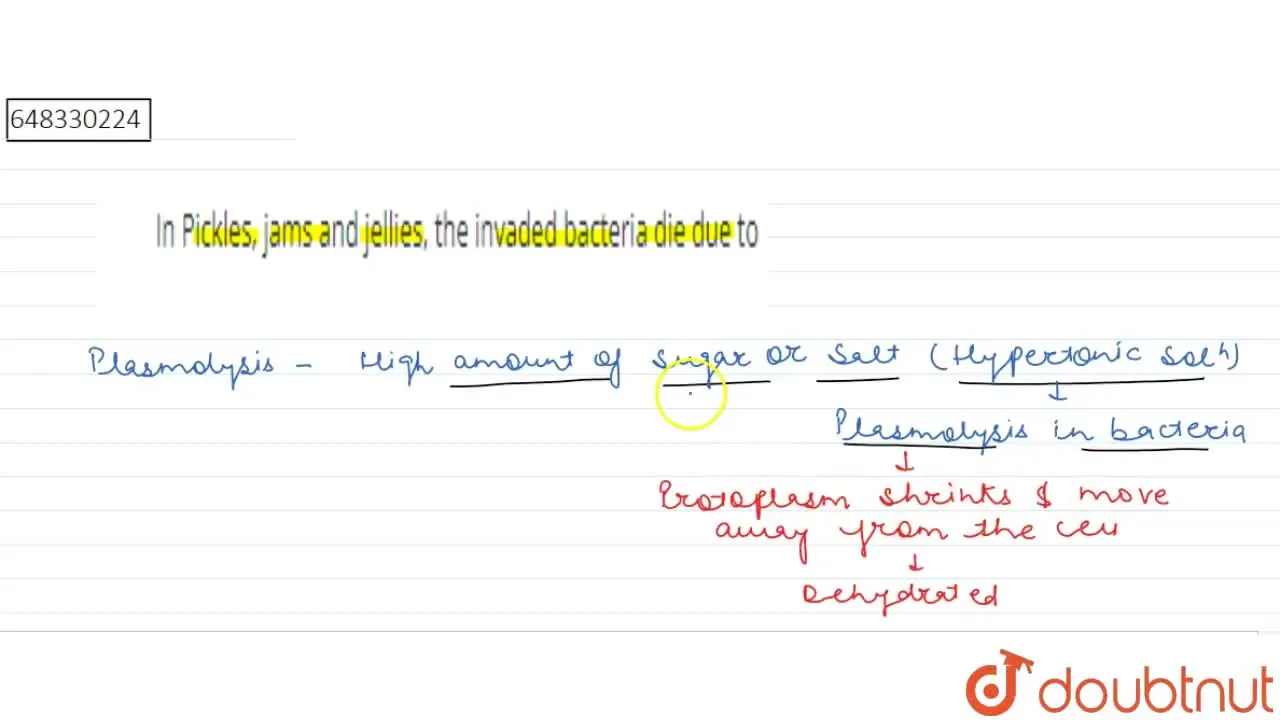 648330224
In Pickles, jams and jellies, the invaded bacteria die due to
Plasmolysis - High amount of sugar or salt (Hypertonic solⁿ)
↓
Plasmolysis in bacteria
↓
Protoplasm shrinks & move
away from the cell
↓
Dehydrated
doubtnut